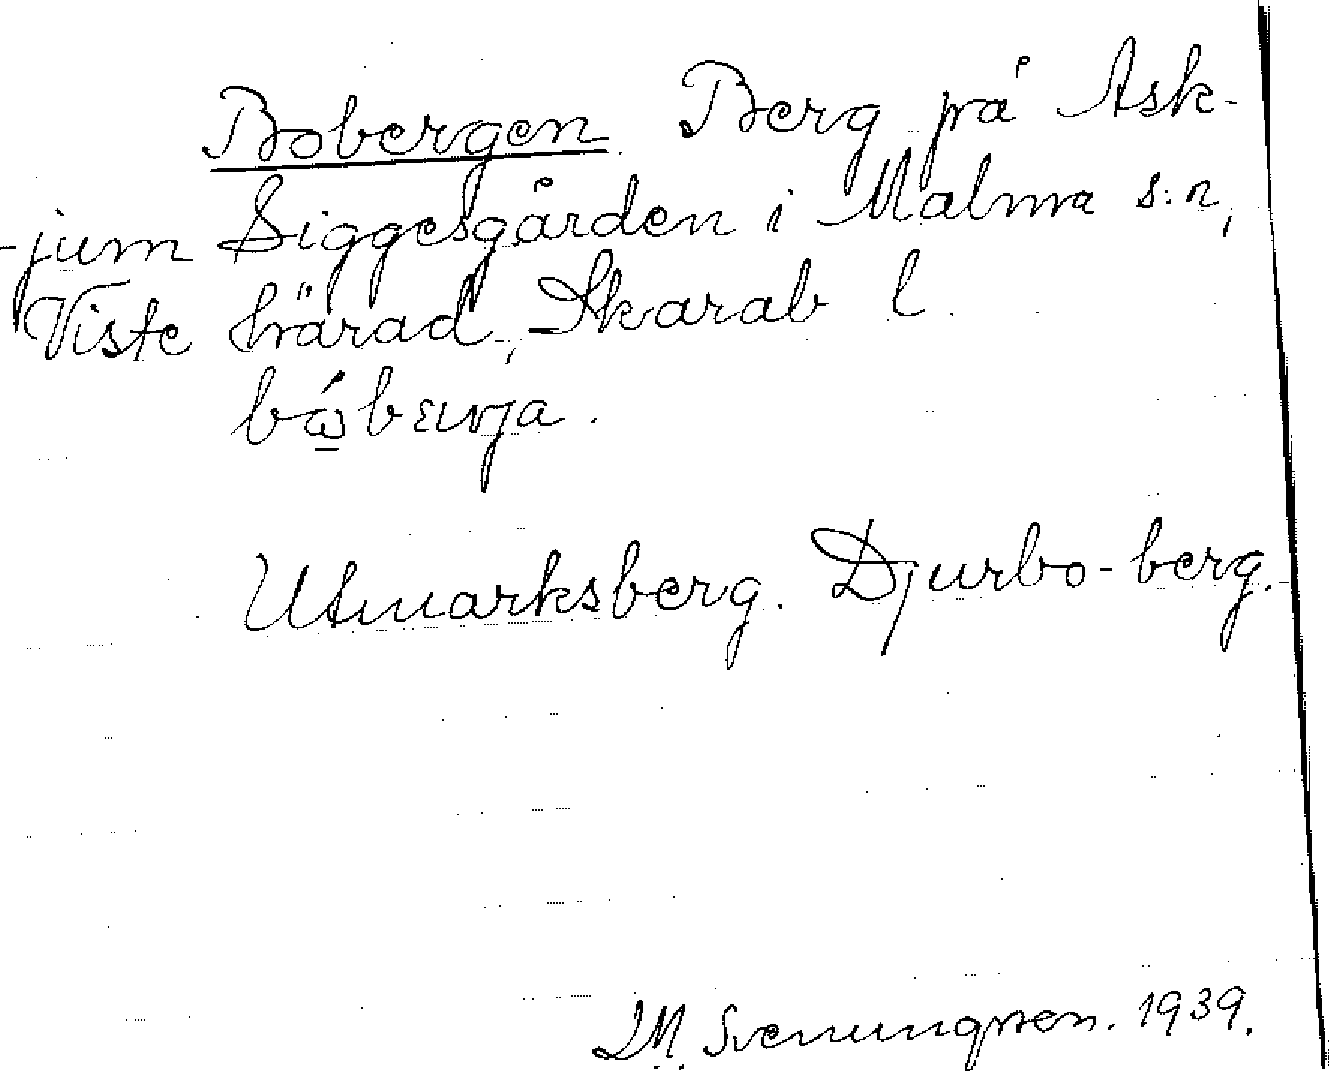 Bobergen Berg på Ask-
-jum Siggesgården i Malma s:n,
Viste härad, Skarab l.
Utmarksberg. Djurbo-berg.
Svenungsson. 1939.